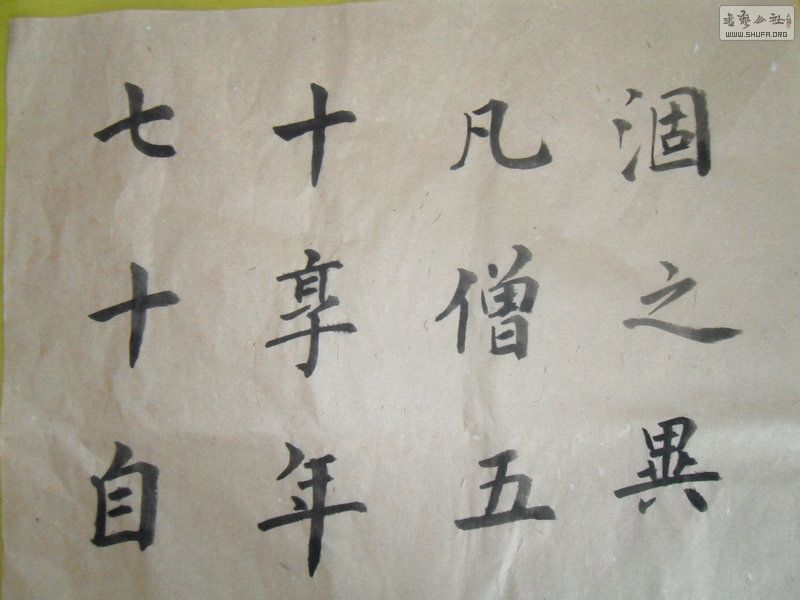 涸之異
凡僧五
十享年
七十自
書藝公社
WWW.SHUFA.ORG